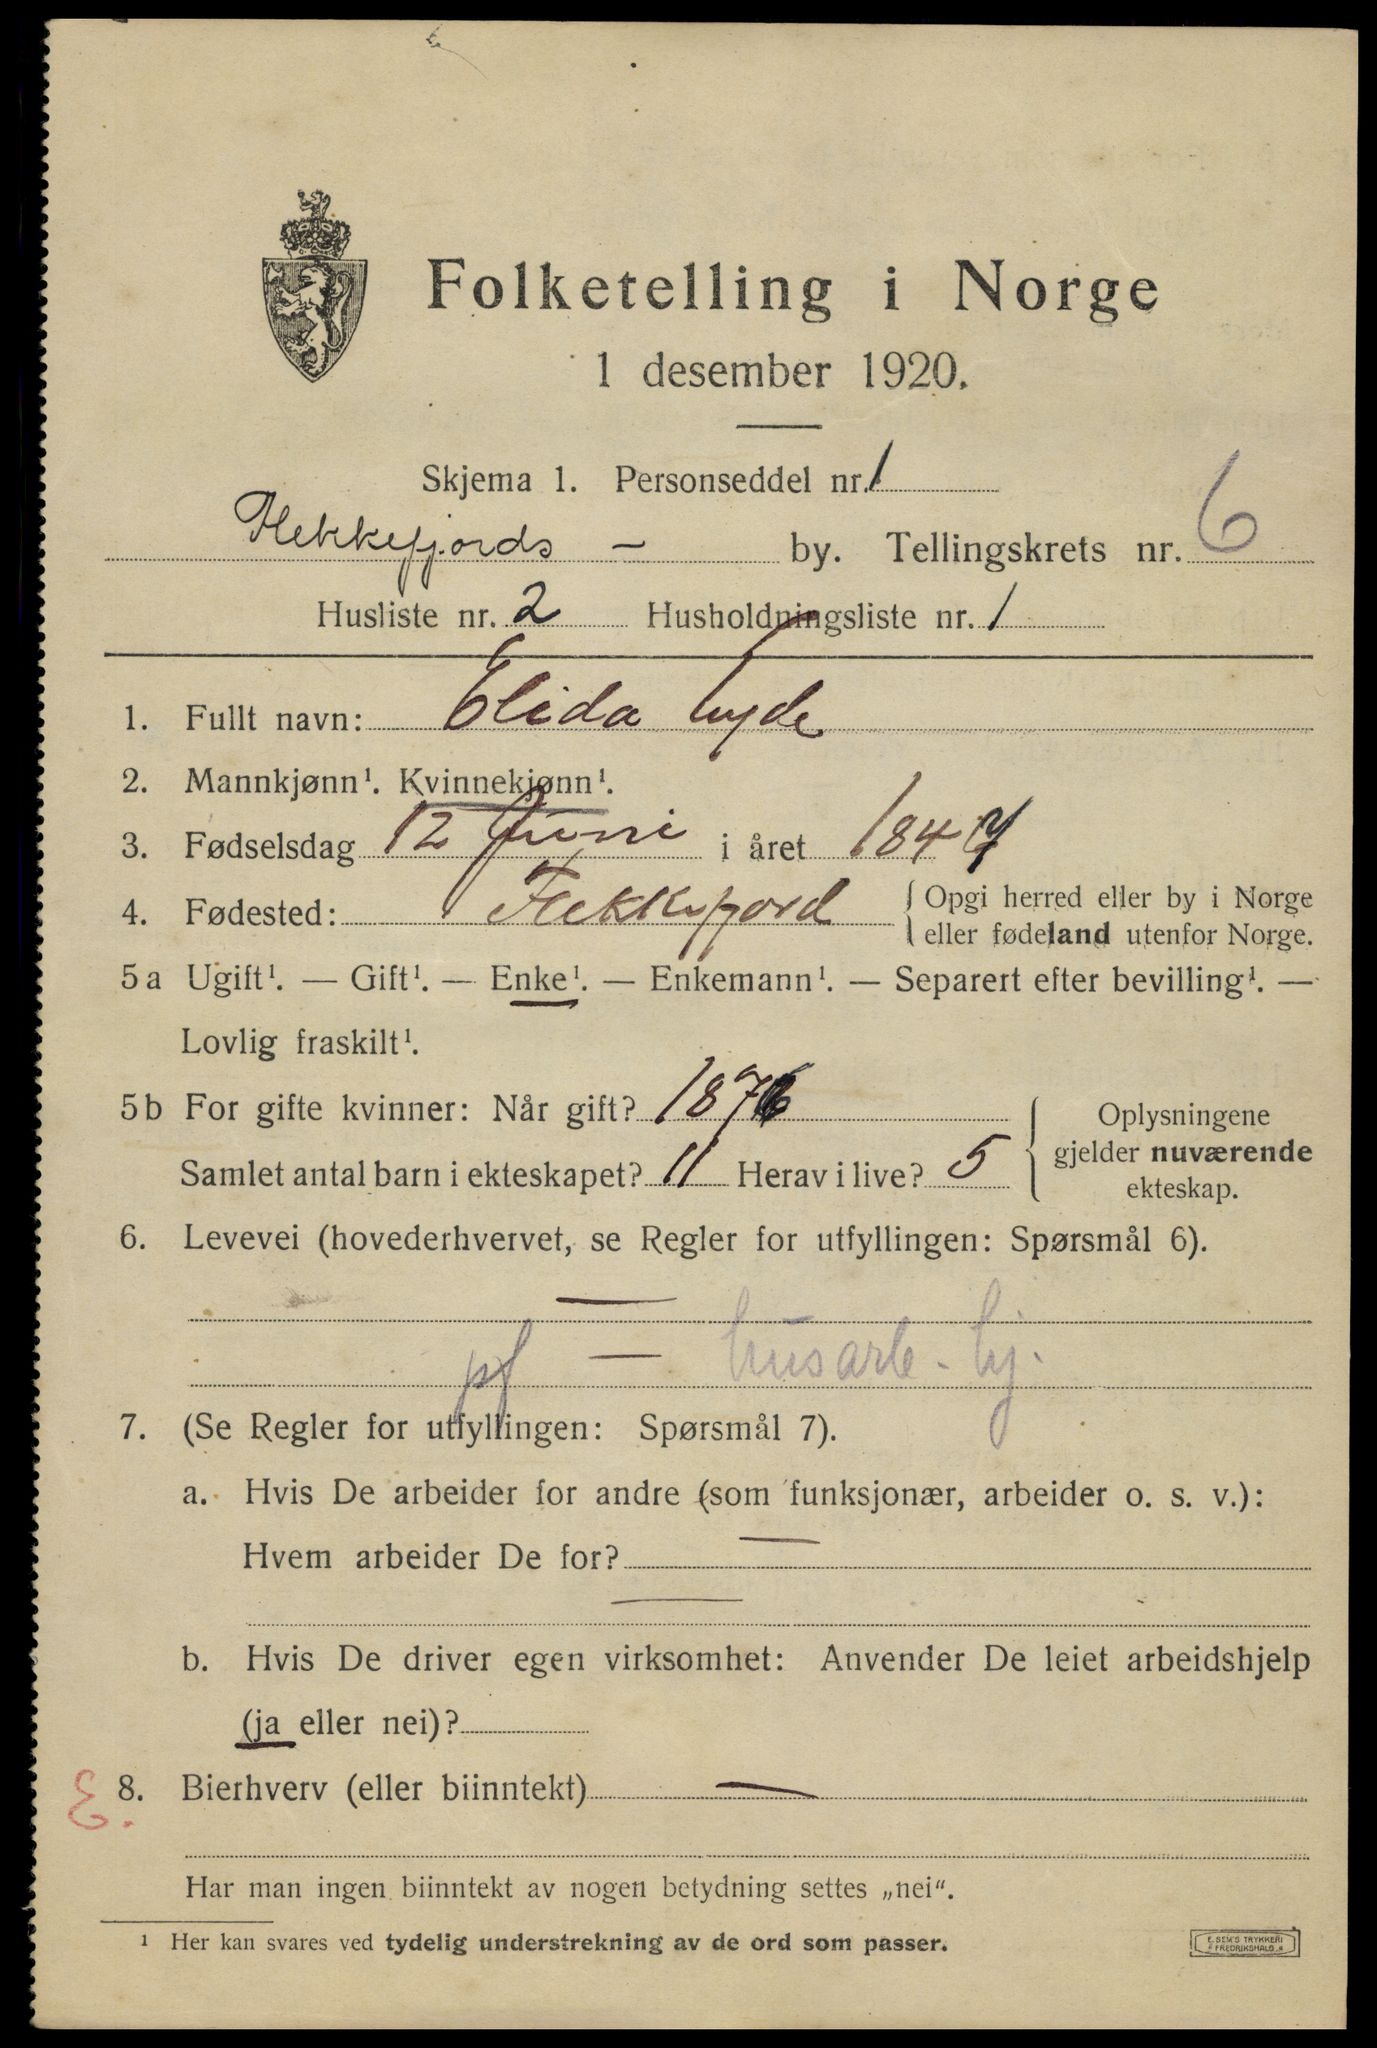 Folketelling i Norge
1 desember 1920.
Skjema 1. Personseddel nr. 1
Flekkefjords — by. Tellingskrets nr. 6
Husliste nr. 2 Husholdningsliste nr. 1
1. Fullt navn: Elida Tyde
2. Mannkjønn¹. Kvinnekjønn¹.
3. Fødselsdag 12 Juni i året 1847
4. Fødested: Flekkefjord { Opgi herred eller by i Norge
eller fødeland utenfor Norge.
5 a Ugift¹. — Gift¹. — Enke¹. — Enkemann¹. — Separert efter bevilling¹. —
Lovlig fraskilt¹.
5 b For gifte kvinner: Når gift? 1876
Samlet antal barn i ekteskapet? 11 Herav i live? 5
Oplysningene
gjelder nuværende
ekteskap.
6. Levevei (hovederhvervet, se Regler for utfyllingen: Spørsmål 6).
—
pf — husarb. hj.
7. (Se Regler for utfyllingen: Spørsmål 7).
a. Hvis De arbeider for andre (som funksjonær, arbeider o. s. v.):
Hvem arbeider De for? —
—
b. Hvis De driver egen virksomhet: Anvender De leiet arbeidshjelp
(ja eller nei)?
E. 8. Bierhverv (eller biinntekt) —
Har man ingen biinntekt av nogen betydning settes „nei“.
¹ Her kan svares ved tydelig understrekning av de ord som passer.
E. SEM'S TRYKKERI
FREDRIKSHALD